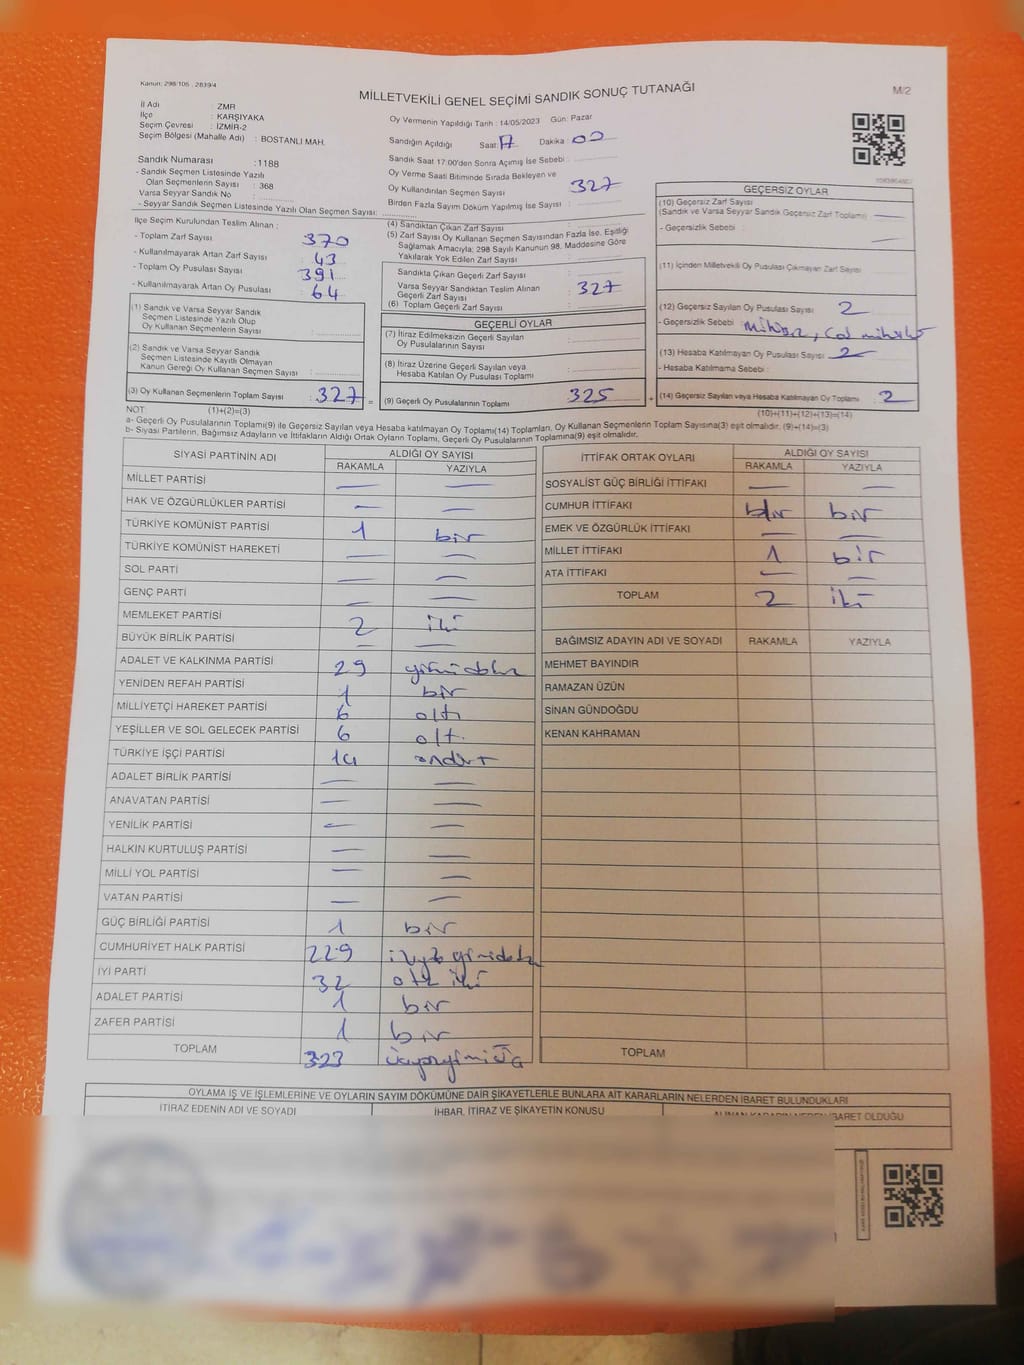 Kanun: 298/105 , 2839/4
MİLLETVEKİLİ GENEL SEÇİMİ SANDIK SONUÇ TUTANAĞI
M/2
İl Adı : ZMR
İlçe : KARŞIYAKA
Seçim Çevresi : İZMİR-2
Seçim Bölgesi (Mahalle Adı) : BOSTANLI MAH.
Oy Vermenin Yapıldığı Tarih : 14/05/2023 Gün: Pazar
Sandığın Açıldığı Saat: Dakika :
Sandık Saat 17:00'den Sonra Açımış İse Sebebi :
Oy Verme Saati Bitiminde Sırada Bekleyen ve
Oy Kullandırılan Seçmen Sayısı 327
Birden Fazla Sayım Döküm Yapılmış İse Sayısı :
Sandık Numarası :1188
- Sandık Seçmen Listesinde Yazılı
Olan Seçmenlerin Sayısı : 368
Varsa Seyyar Sandık No :
- Seyyar Sandık Seçmen Listesinde Yazılı Olan Seçmen Sayısı:
İlçe Seçim Kurulundan Teslim Alınan :
- Toplam Zarf Sayısı : 370
- Kullanılmayarak Artan Zarf Sayısı : 43
- Toplam Oy Pusulası Sayısı : 391
- Kullanılmayarak Artan Oy Pusulası : 64
(1) Sandık ve Varsa Seyyar Sandık
Seçmen Listesinde Yazılı Olup
Oy Kullanan Seçmenlerin Sayısı :
(2) Sandık ve Varsa Seyyar Sandık
Seçmen Listesinde Kayıtlı Olmayan
Kanun Gereği Oy Kullanan Seçmen Sayısı :
(3) Oy Kullanan Seçmenlerin Toplam Sayısı : 327
(4) Sandıktan Çıkan Zarf Sayısı :
(5) Zarf Sayısı Oy Kullanan Seçmen Sayısından Fazla İse, Eşitliği
Sağlamak Amacıyla; 298 Sayılı Kanunun 98. Maddesine Göre
Yakılarak Yok Edilen Zarf Sayısı :
Sandıkta Çıkan Geçerli Zarf Sayısı :
Varsa Seyyar Sandıktan Teslim Alınan
Geçerli Zarf Sayısı : 327
(6) Toplam Geçerli Zarf Sayısı :
GEÇERLİ OYLAR
(7) İtiraz Edilmeksizin Geçerli Sayılan
Oy Pusulalarının Sayısı :
(8) İtiraz Üzerine Geçerli Sayılan veya
Hesaba Katılan Oy Pusulası Toplamı :
(9) Geçerli Oy Pusulalarının Toplamı : 325
GEÇERSİZ OYLAR
(10) Geçersiz Zarf Sayısı
(Sandık ve Varsa Seyyar Sandık Geçersiz Zarf Toplamı)
- Geçersizlik Sebebi :
(11) İçinden Milletvekili Oy Pusulası Çıkmayan Zarf Sayısı :
(12) Geçersiz Sayılan Oy Pusulası Sayısı : 2
- Geçersizlik Sebebi :
(13) Hesaba Katılmayan Oy Pusulası Sayısı : 2
- Hesaba Katılmama Sebebi :
(14) Geçersiz Sayılan veya Hesaba Katılmayan Oy Toplamı : 2
NOT: (1)+(2)=(3) (10)+(11)+(12)+(13)=(14)
a- Geçerli Oy Pusulalarının Toplamı(9) ile Geçersiz Sayılan veya Hesaba katılmayan Oy Toplamı(14) Toplamları, Oy Kullanan Seçmenlerin Toplam Sayısına(3) eşit olmalıdır. (9)+(14)=(3)
b- Siyasi Partilerin, Bağımsız Adayların ve İttifakların Aldığı Ortak Oyların Toplamı, Geçerli Oy Pusulalarının Toplamına(9) eşit olmalıdır.
SİYASİ PARTİNİN ADI ALDIĞI OY SAYISI
RAKAMLA YAZIYLA
MİLLET PARTİSİ
HAK VE ÖZGÜRLÜKLER PARTİSİ
TÜRKİYE KOMÜNİST PARTİSİ 1 bir
TÜRKİYE KOMÜNİST HAREKETİ
SOL PARTİ
GENÇ PARTİ
MEMLEKET PARTİSİ 2 iki
BÜYÜK BİRLİK PARTİSİ
ADALET VE KALKINMA PARTİSİ 29
YENİDEN REFAH PARTİSİ 1 bir
MİLLİYETÇİ HAREKET PARTİSİ 6 altı
YEŞİLLER VE SOL GELECEK PARTİSİ 6 altı
TÜRKİYE İŞÇİ PARTİSİ 14 ondört
ADALET BİRLİK PARTİSİ
ANAVATAN PARTİSİ
YENİLİK PARTİSİ
HALKIN KURTULUŞ PARTİSİ
MİLLİ YOL PARTİSİ
VATAN PARTİSİ
GÜÇ BİRLİĞİ PARTİSİ 1 bir
CUMHURİYET HALK PARTİSİ 229
İYİ PARTİ 32 otz iki
ADALET PARTİSİ 1 bir
ZAFER PARTİSİ 1 bir
TOPLAM 323
İTTİFAK ORTAK OYLARI ALDIĞI OY SAYISI
RAKAMLA YAZIYLA
SOSYALİST GÜÇ BİRLİĞİ İTTİFAKI
CUMHUR İTTİFAKI bir bir
EMEK VE ÖZGÜRLÜK İTTİFAKI
MİLLET İTTİFAKI 1 bir
ATA İTTİFAKI
TOPLAM 2 iki
BAĞIMSIZ ADAYIN ADI VE SOYADI RAKAMLA YAZIYLA
MEHMET BAYINDIR
RAMAZAN ÜZÜN
SİNAN GÜNDOĞDU
KENAN KAHRAMAN
TOPLAM
OYLAMA İŞ VE İŞLEMLERİNE VE OYLARIN SAYIM DÖKÜMÜNE DAİR ŞİKAYETLERLE BUNLARA AİT KARARLARIN NELERDEN İBARET BULUNDUKLARI
İTİRAZ EDENİN ADI VE SOYADI İHBAR, İTİRAZ VE ŞİKAYETİN KONUSU